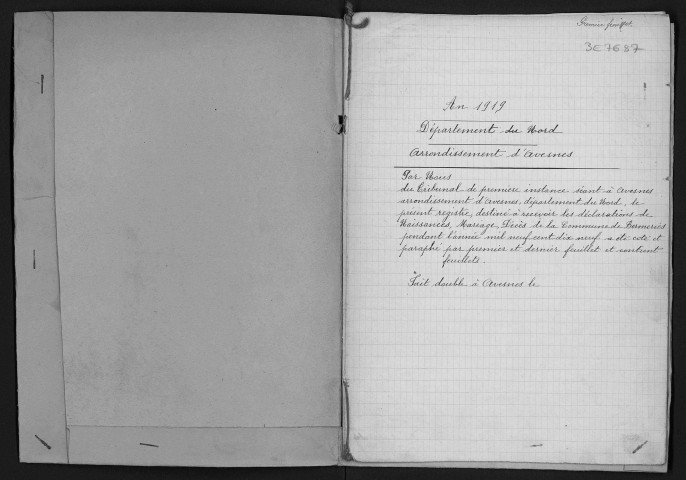 Premier feuillet.
3E7687
An 1919
Département du Nord
Arrondissement d'Avesnes
Par Nous
du Tribunal de première instance séant à Avesnes
arrondissement d'Avesnes, département du Nord, le
présent registre, destiné à recevoir les déclarations de
Naissances, Mariage, Décès de la Commune de
pendant l'année mil neuf cent dix neuf a été coté et
paraphé par premier et dernier feuillet et contient
feuillets.
Fait double à Avesnes le